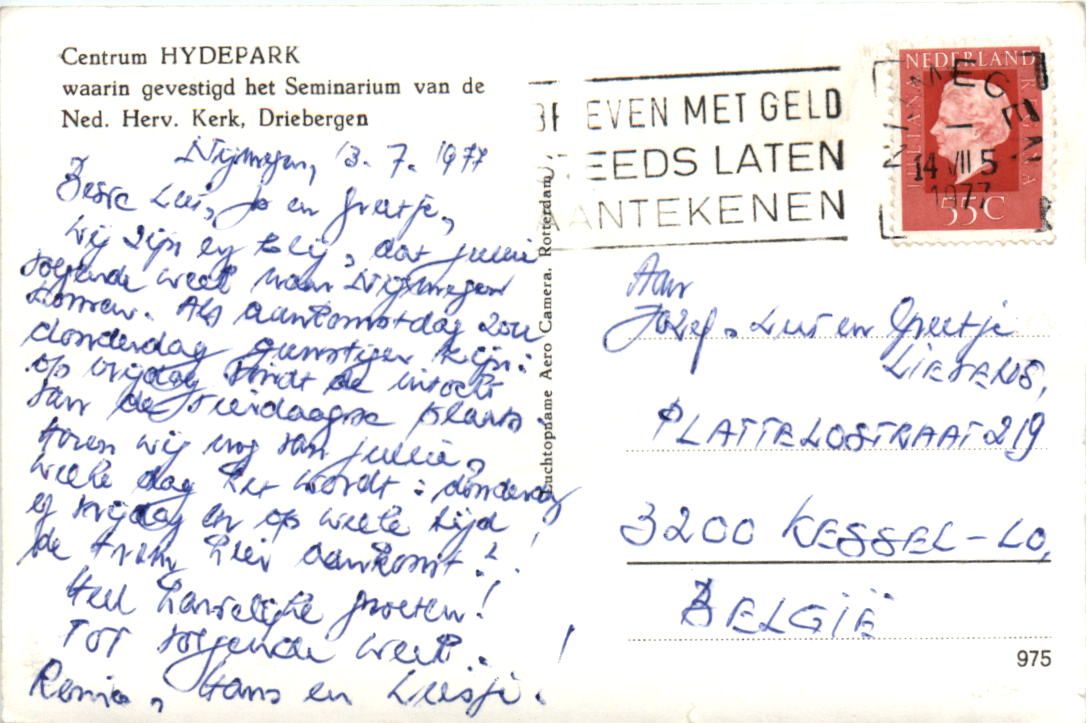 Centrum HYDEPARK
waarin gevestigd het Seminarium van de
Ned. Herv. Kerk, Driebergen
Nijmegen, 13. 7. 1977
Beste Lus, Jo en Greetje,
Wij zijn erg blij, dat jullie
volgende week naar Nijmegen
komen. Als aankomstdag zou
donderdag gunstiger zijn:
op vrijdag vindt de intocht
van de Vierdaagse plaats.
Horen wij nog van jullie,
welke dag het wordt: donderdag
of vrijdag en op welke tijd
de trein hier aankomt?!
Heel hartelijke groeten!
Tot volgende week!
Hans en Liesje.
Luchtopname Aero Camera. Rotterdam.
BRIEVEN MET GELD
STEEDS LATEN
AANTEKENEN
NIJMEGEN
14 VII 5
1977
NEDERLAND
JULIANA REGINA
55C
Aan
Jozef, Lus en Greetje
PLATTELOSTRAAT 219
3200 KESSEL-LO,
BELGIË
975